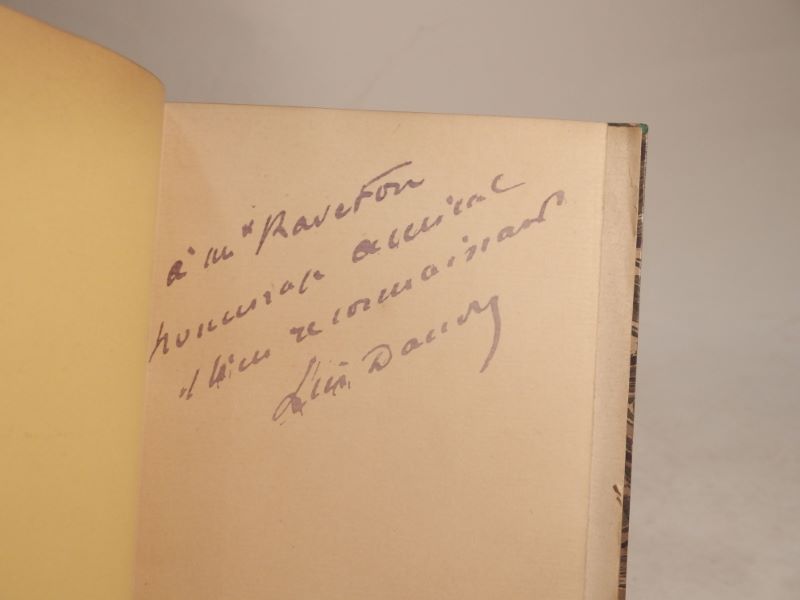 à Me Raveton
hommage amical
et bien reconnaissant
Léon Daudet